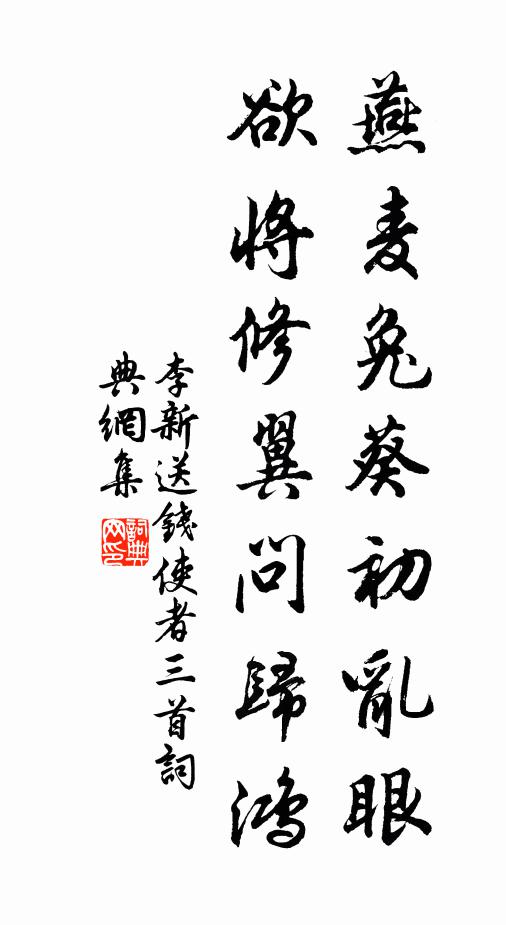 燕麦兔葵初亂眼
欲將修翼問歸鴻
李新送錢使者三首詞
典網集
詞典网印